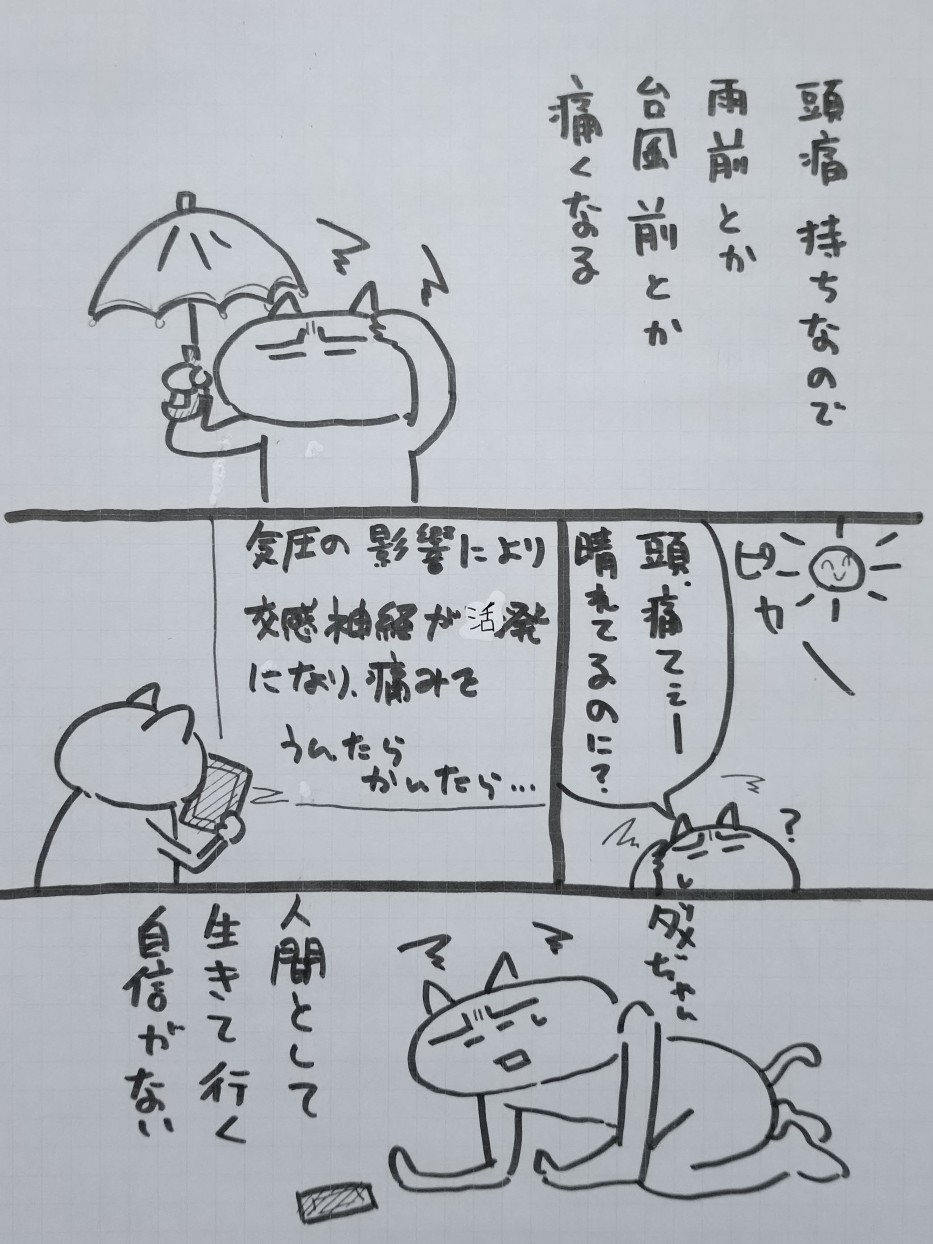 頭痛持ちなので
雨前とか
台風前とか
痛くなる
ピカ
頭、痛てぇー
晴れてるのに?
?
気圧の影響により
交感神経が活発
になり、痛みを
うんたら
かんたら…
ダメじゃん
人間として
生きて行く
自信がない